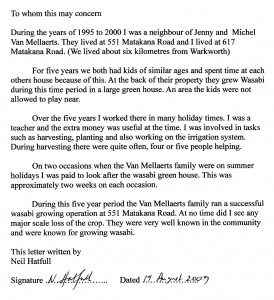 To whom this may concern
During the years of 1995 to 2000 I was a neighbour of Jenny and Michel
Van Mellaerts. They lived at 551 Matakana Road and I lived at 617
Matakana Road. (We lived about six kilometres from Warkworth)
For five years we both had kids of similar ages and spent time at each
others house because of this. At the back of their property they grew Wasabi
during this time period in a large green house. An area the kids were not
allowed to play near.
Over the five years I worked there in many holiday times. I was a
teacher and the extra money was useful at the time. I was involved in tasks
such as harvesting, planting and also working on the irrigation system.
During harvesting there were quite often, four or five people helping.
On two occasions when the Van Mellaerts family were on summer
holidays I was paid to look after the wasabi green house. This was
approximately two weeks on each occasion.
During this five year period the Van Mellaerts family ran a successful
wasabi growing operation at 551 Matakana Road. At no time did I see any
major scale loss of the crop. They were very well known in the community
and were known for growing wasabi.
This letter written by
Neil Hatfull
Signature N. Hatfull ...... Dated 19 August 2009